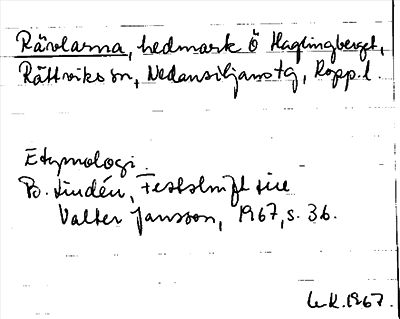 Rävlarna, hedmark Ö Haglingberget,
Rättviks sn, Nedansiljans tg, Kopp. l.
Etymologi.
B. Lindén, Festskrift till
Valter Jansson, 1967, s. 36.
1967.